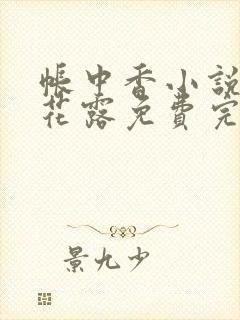 帳中香小說
花露免費完
景九少